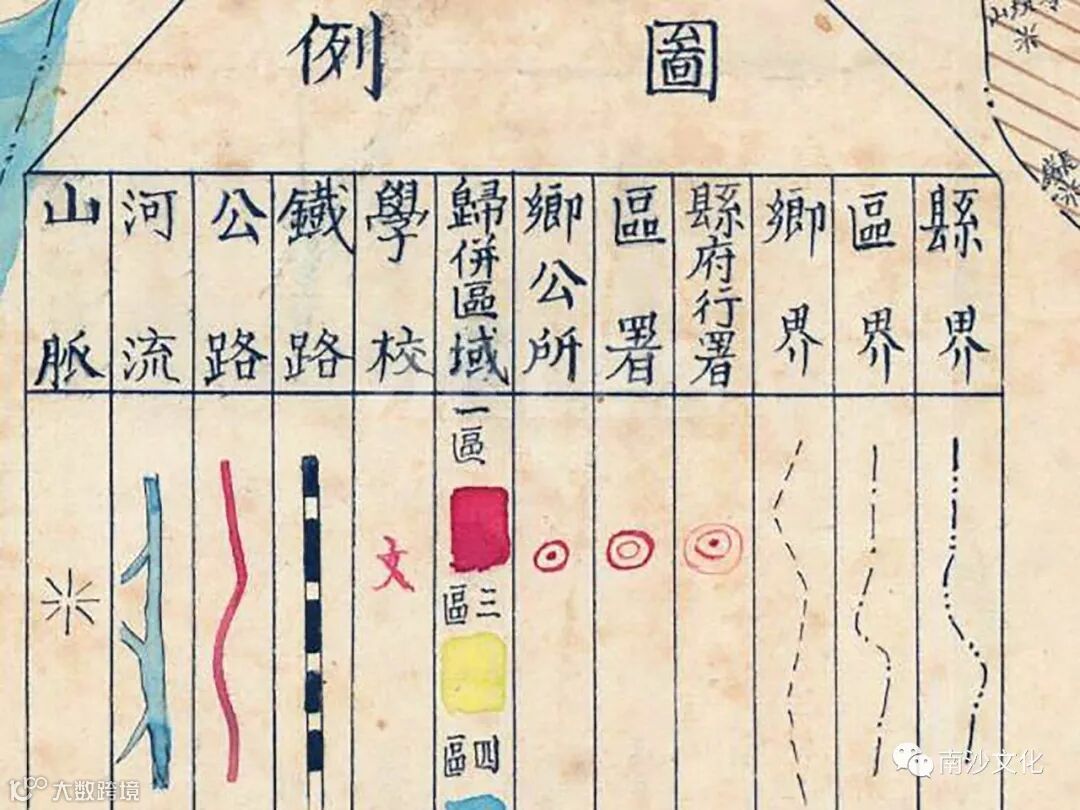 圖例
縣界
區界
鄉界
縣府行署
區署
鄉公所
歸併區域
學校
鐵路
公路
河流
山脈
一區
三區
四區
文
南沙文化
大数跨境